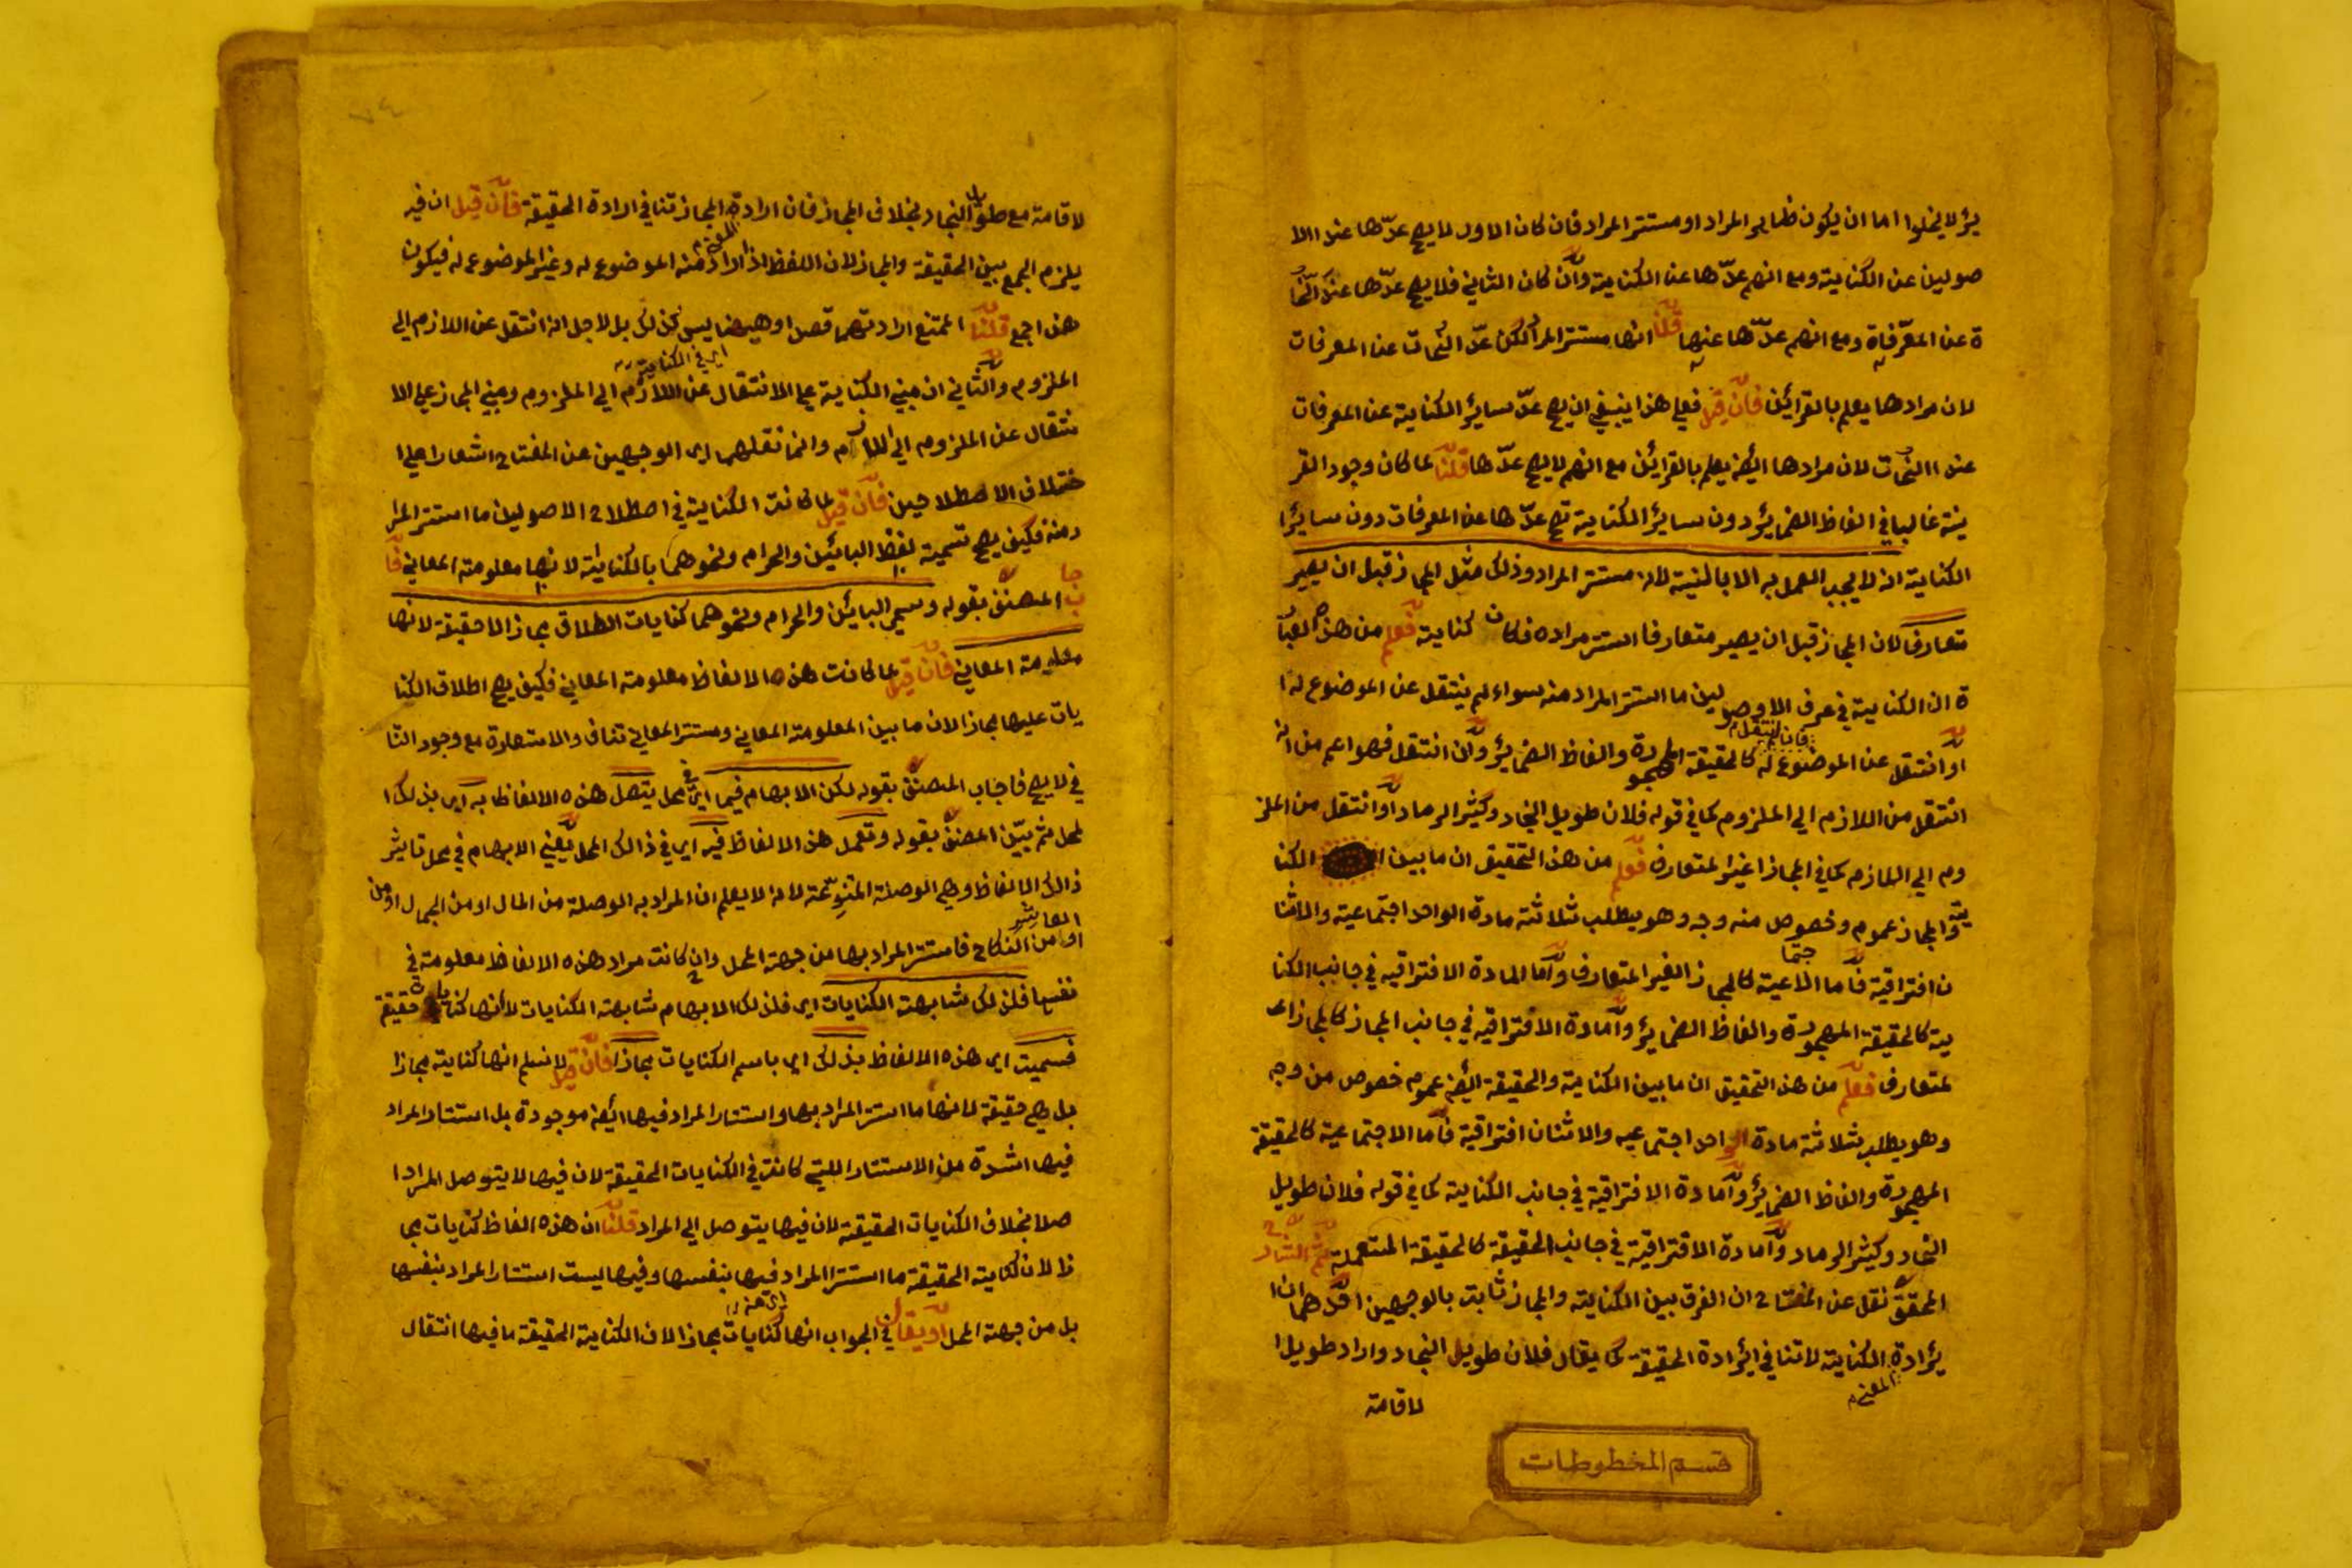 يؤ لا يخلوا اما ان يكون ظاهر المراد او مستتر المراد فان كان الاول لا يصح عدّها عند الا
صولين عن الكناية ومع انهم عدّها عن الكناية وان كان الثاني فلا يصح عدّها عند النحا
ة عن المعرّفاة ومع انهم عدّها عنها قلنا انها مستتر المراد لكن عدّ النحات عن المعرفات
لان مرادها يعلم بالقرائن فان قيل فعلي هذا ينبغي ان يصح عدّ سايرؤ الكناية عن المعرفات
عند النحات لان مرادها ايضا يعلم بالقرائن مع انهم لا يصح عدّها قلنا لما كان وجود القر
ينة غالبا في الفاظ الضمايؤر دون سايؤر الكناية تصح عدّها عن المعرفات دون سايؤر
الكناية انه لا يجب العمل به الا بالنية لانه مستتر المراد وذلك مثل المجاز قبل ان يصير
متعارفا لان المجاز قبل ان يصير متعارفا استتر مراده فكان كناية فعلم من هذه العبا
ة ان الكناية في عرف الاوصولين ما استتر المراد منه سواء لم ينتقل عن الموضوع له
او انتقل عن الموضوع له فان لم ينتقل كالحقيقة المهجورة والفاظ الضمايؤر وان انتقل فهو اعم من انه
انتقل من اللازم الي الملزوم كما في قوله فلان طويل النجاد وكثير الرماد او انتقل من الملز
وم الي اللازم كما في المجاز الغير المتعارف فعلم من هذه التحقيق ان ما بين الكنا
ية والمجاز عموم وخصوص منه وجه وهو يطلب ثلاثة مادة الواحد اجتماعية والاثنا
ن افتراقية فاما الاجتماعية كالمجاز الغير المتعارف واما المادة الافتراقيه في جانب الكنا
ية كالحقيقة المهجورة والفاظ الضمايؤر واما مادة الافتراقيه في جانب المجاز كالمجاز ا
لمتعارف فعلم من هذه التحقيق ان ما بين الكناية والحقيقة ايضا عموم خصوص من وجه
وهو يطلب ثلاثة مادة الواحد اجتماعيه والاثنان افتراقية فاما الاجتماعية كالحقيقة
المهجورة والفاظ الضمايؤر واما مادة الافتراقية في جانب الكناية كما في قوله فلان طويل
النجاد وكثير الرماد واما مادة الافتراقية في جانب الحقيقة كالحقيقة المستعملة ثم الشار
المحقق نقل عن المفتاح ان الفرق بين الكناية والمجاز ثابت بالوجهين احدهما ان ا
يؤرادة المعني الكناية لا تنافي ايؤرادة الحقيقة كما يقال فلان طويل النجاد واراد طويل ا
لاقامة
قسم المخطوطات
٧٤
لاقامة مع طول النجاد بخلاف المجاز فان ارادة المعني المجاز تنافي ارادة الحقيقة فان قيل ان فيه
يلزم الجمع بين الحقيقة والمجاز لان اللفظ اذا اراد منه الموضوع له وغير الموضوع له فيكون
هذا جمع قلنا الممتنع ارادتهما قصدا وههنا ليس كذلك بل لاجل انه انتقل عن اللازم الي
الملزوم والثاني ان مبني الكناية علي الانتقال عن اللازم اي في الكناية الي الملزوم ومبني المجاز علي الا
نتقال عن الملزوم الي اللازم وانما نقلهما اي الوجهين عن المفتاح اشعارا علي ا
ختلاف الاصطلاحين فان قيل لما كانت الكناية في اصطلاح الاصولين ما استتر المرا
د منه فكيف يصح تسمية لفظ البائن والحرام ونحوهما بالكناية لانها معلومة المعاني فا
جاب المصنف بقوله وسمي البائن والحرام ونحوهما كنايات الطلاق مجازا لا حقيقة لانها
معلومة المعاني فان قيل لما كانت هذه الالفاظ معلومة المعاني فكيف يصح اطلاق الكنا
يات عليها مجازا لان ما بين المعلومة المعاني ومستتر المعاني تناف والاستعارة مع وجود التنا
في لا يصح فاجاب المصنف بقوله لكن الابهام فيما اي في محل يتصل هذه الالفاظ به اي بذلك ا
لمحل ثم بيّن المصنف بقوله وتعمل هذه الالفاظ فيه اي في ذالك المحل يعني الابهام في محل تاثير
ذالك الالفاظ وهي الوصلة المتنوّعة لانه لا يعلم ان المراد به الوصلة من المال او من الجمال او من المعاشر
او من النكاح فاستتر المراد بها من جهة المحل وان كانت مراد هذه الالفاظ معلومة في
نفسها فلذلك شابهت الكنايات اي فلذلك الابهام شابهت الكنايات لانها كنايات حقيقة
فسميت اي هذه الالفاظ بذلك اي باسم الكنايات مجازا فان قيل لا نسلم انها كناية مجازا
بل هي حقيقة لانها ما استتر المراد بها واستتار المراد فيها ايضا موجودة بل استتار المراد
فيها اشدة من الاستتار اللتي كانت في الكنايات الحقيقة لان فيها لا يتوصل المراد ا
صلا بخلاف الكنايات الحقيقة لان فيها يتوصل الي المراد قلنا ان هذه الفاظ كنايات مجا
ذا لان كناية الحقيقة ما استتر المراد فيها بنفسها وفيها ليست استتار المراد بنفسها
بل من جهة المحل او يقال في الجواب انها كنايات مجازا لان الكناية الحقيقة ما فيها انتقال